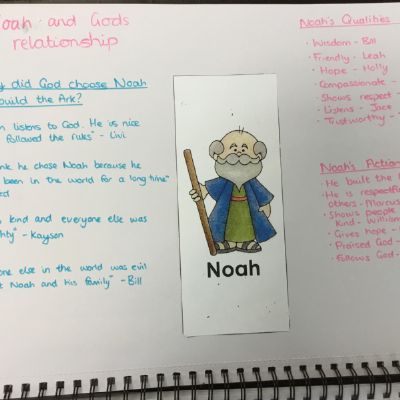 oah and Gods
relationship
y did God choose Noah
build the Ark?
n listens to God. He is nice
followed the rules" - Livi
nk he chose Noah because he
been in the world for a long time"
ed
s kind and everyone else was
ghty" - Kayson
one else in the world was evil
t Noah and his family" - Bill
Noah
Noah's Qualities
· Wisdom - Bill
· Friendly - Leah
· Hope - Holly
· Compassionate -
· Shows respect -
· Listens - Jace
· Trustworthy -
Noah's Action
· He built the
· He is respectful
others - Marcus
· Shows people
kind - William
· Gives hope -
· Praised God -
· Follows God -